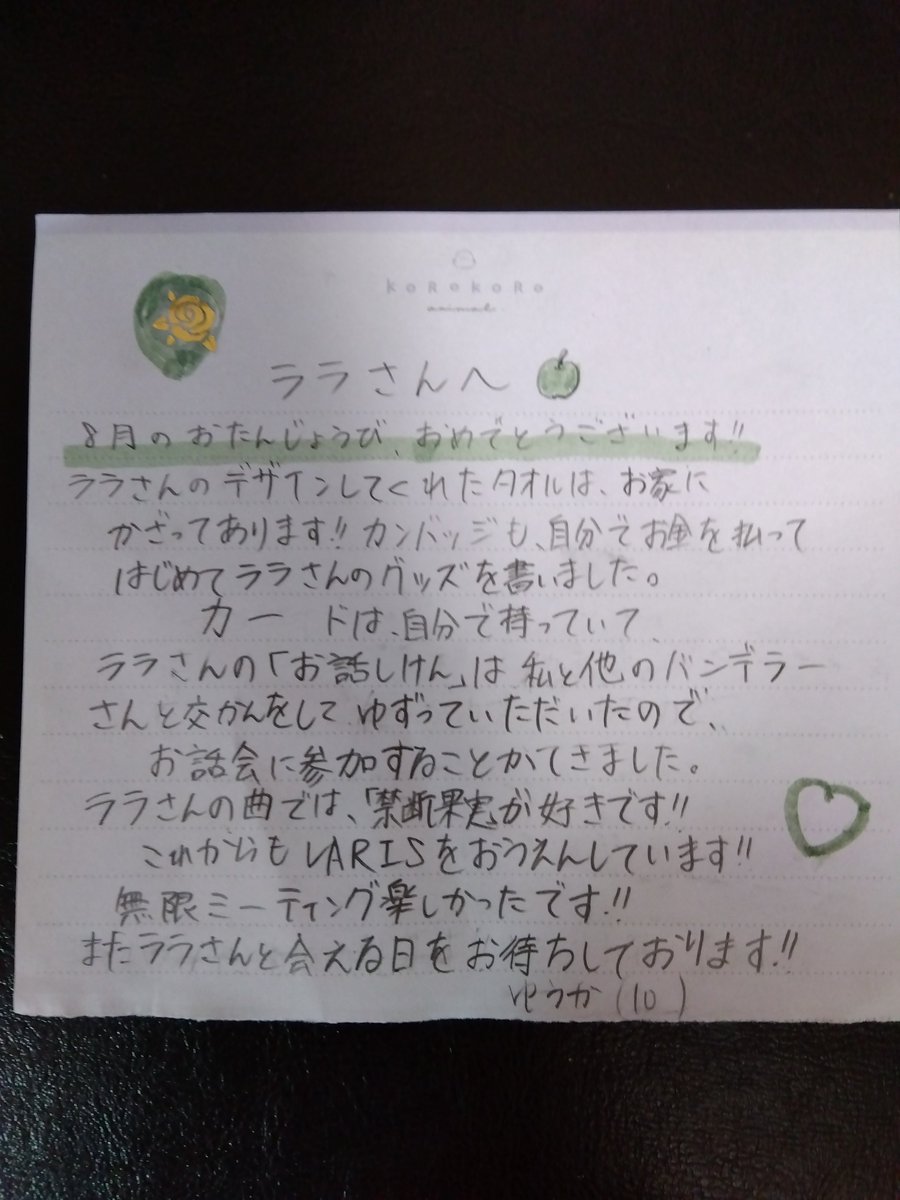 KoRoKoRo
animal
ララさんへ
8月のおたんじょうび、おめでとうございます!!
ララさんのデザインしてくれたタオルは、お家に
かざってあります!! カンバッジも、自分でお金を払って
はじめてララさんのグッズを書いました。
カードは、自分で持っていて、
ララさんの「お話しけん」は私と他のバンデラー
さんと交かんをしてゆずっていただいたので、
お話会に参加することができました。
ララさんの曲では、「禁断果実が好きです!!
これからもVARISをおうえんしています!!
無限ミーティング楽しかったです!!
またララさんと会える日をお待ちしております!!
ゆうか(10)